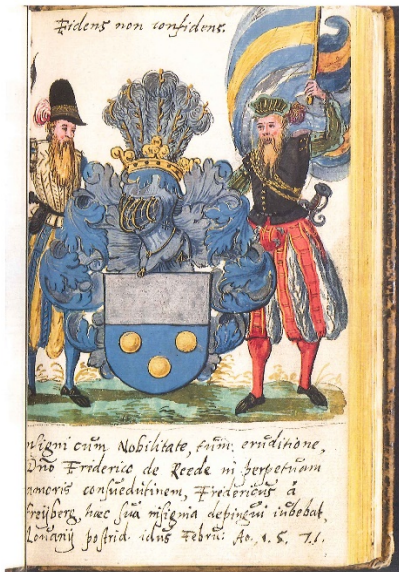 Fidens non confidens.
nsigni cum Nobilitate, tum eruditione,
Dño Friderico de Reede in perpetuam
amoris consuedutinem, Fredericus á
Freyberg, hæc sua insignia depingui iubebat,
Lovanij postrid. idus Febru: Ao. 1.5. 71.